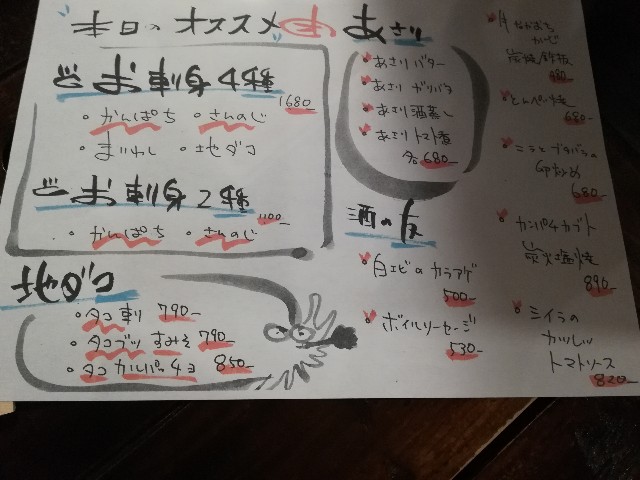 本日のオススメ
お刺身4種
1680-
・かんぱち ・さんのじ
・まいわし ・地ダコ
お刺身2種
1100-
・かんぱち ・さんのじ
・タコ刺 790-
・タコブツ すみそ 790-
・タコ カルパッチョ 850-
あさり
・あさり バター
・あさり ガリバタ
・あさり 酒蒸し
・あさり トマト
各680-
酒の友
・白エビのカラアゲ
500-
・ボイルソーセージ
530-
なかおち
炭焼 鉄板
980-
・とんぺい焼
680-
・ニラとブタバラの
680-
・カンパチカブト
炭火塩焼
890-
・ミイラの
カツレツ
トマトソース
820-